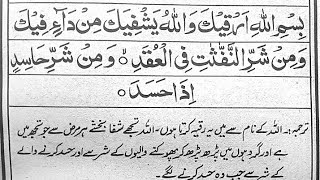 بِسْمِ اللهِ اَرْقِيْكَ وَاللهُ يَشْفِيْكَ مِنْ دَآءٍ فِيْكَ
وَمِنْ شَرِّ النَّفّٰثٰتِ فِي الْعُقَدِ ٥ وَمِنْ شَرِّ حَاسِدٍ
اِذَا حَسَدَ ٥
ترجمہ: اللہ کے نام سے میں یہ رقیہ کرتا ہوں۔ اللہ تجھے شفا بخشے ہر مرض سے جو تجھ میں
ہے اور گرہوں میں پڑھ پڑھ کر پھونکنے والیوں کے شر سے اور حسد کرنے والے
کے شر سے جب وہ حسد کرنے لگے۔